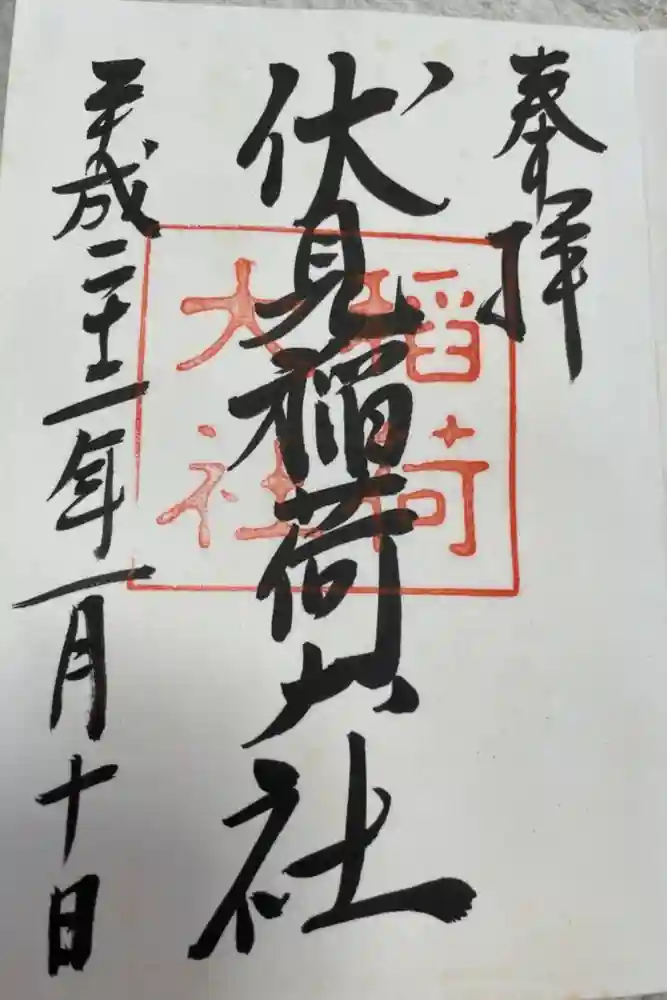 奉拝
伏見稲荷大社
稲荷
大社
平成二十二年一月十日